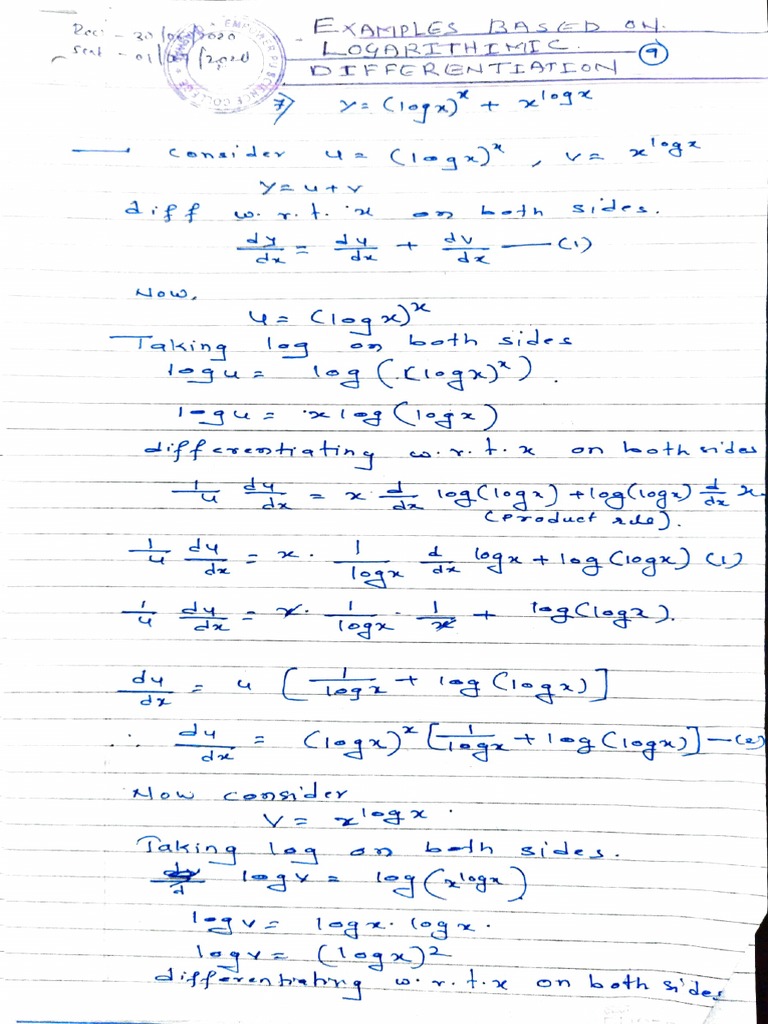 Rec: - 30/06/2020
Sent - 01/07/2020
EXAMPLES BASED ON
LOGARITHIMIC
DIFFERENTIATION
9
7) y = (logx)^x + x^logx
— Consider u = (logx)^x , v = x^logx
y = u + v
diff w.r.t. x on both sides.
dy/dx = du/dx + dv/dx — (1)
Now,
u = (logx)^x
Taking log on both sides
logu = log ((logx)^x).
logu = x log(logx)
differentiating w.r.t.x on both sides
1/u du/dx = x. d/dx log(logx) + log(logx) d/dx x.
(Product rule).
1/u du/dx = x. 1/logx d/dx logx + log(logx) (1)
1/u du/dx = x. 1/logx . 1/x + log(logx).
du/dx = u [1/logx + log(logx)]
∴ du/dx = (logx)^x [1/logx + log(logx)] — (2)
Now consider
v = x^logx.
Taking log on both sides.
logv = log(x^logx)
logv = logx. logx.
logv = (logx)^2
differentiating w.r.t.x on both sides